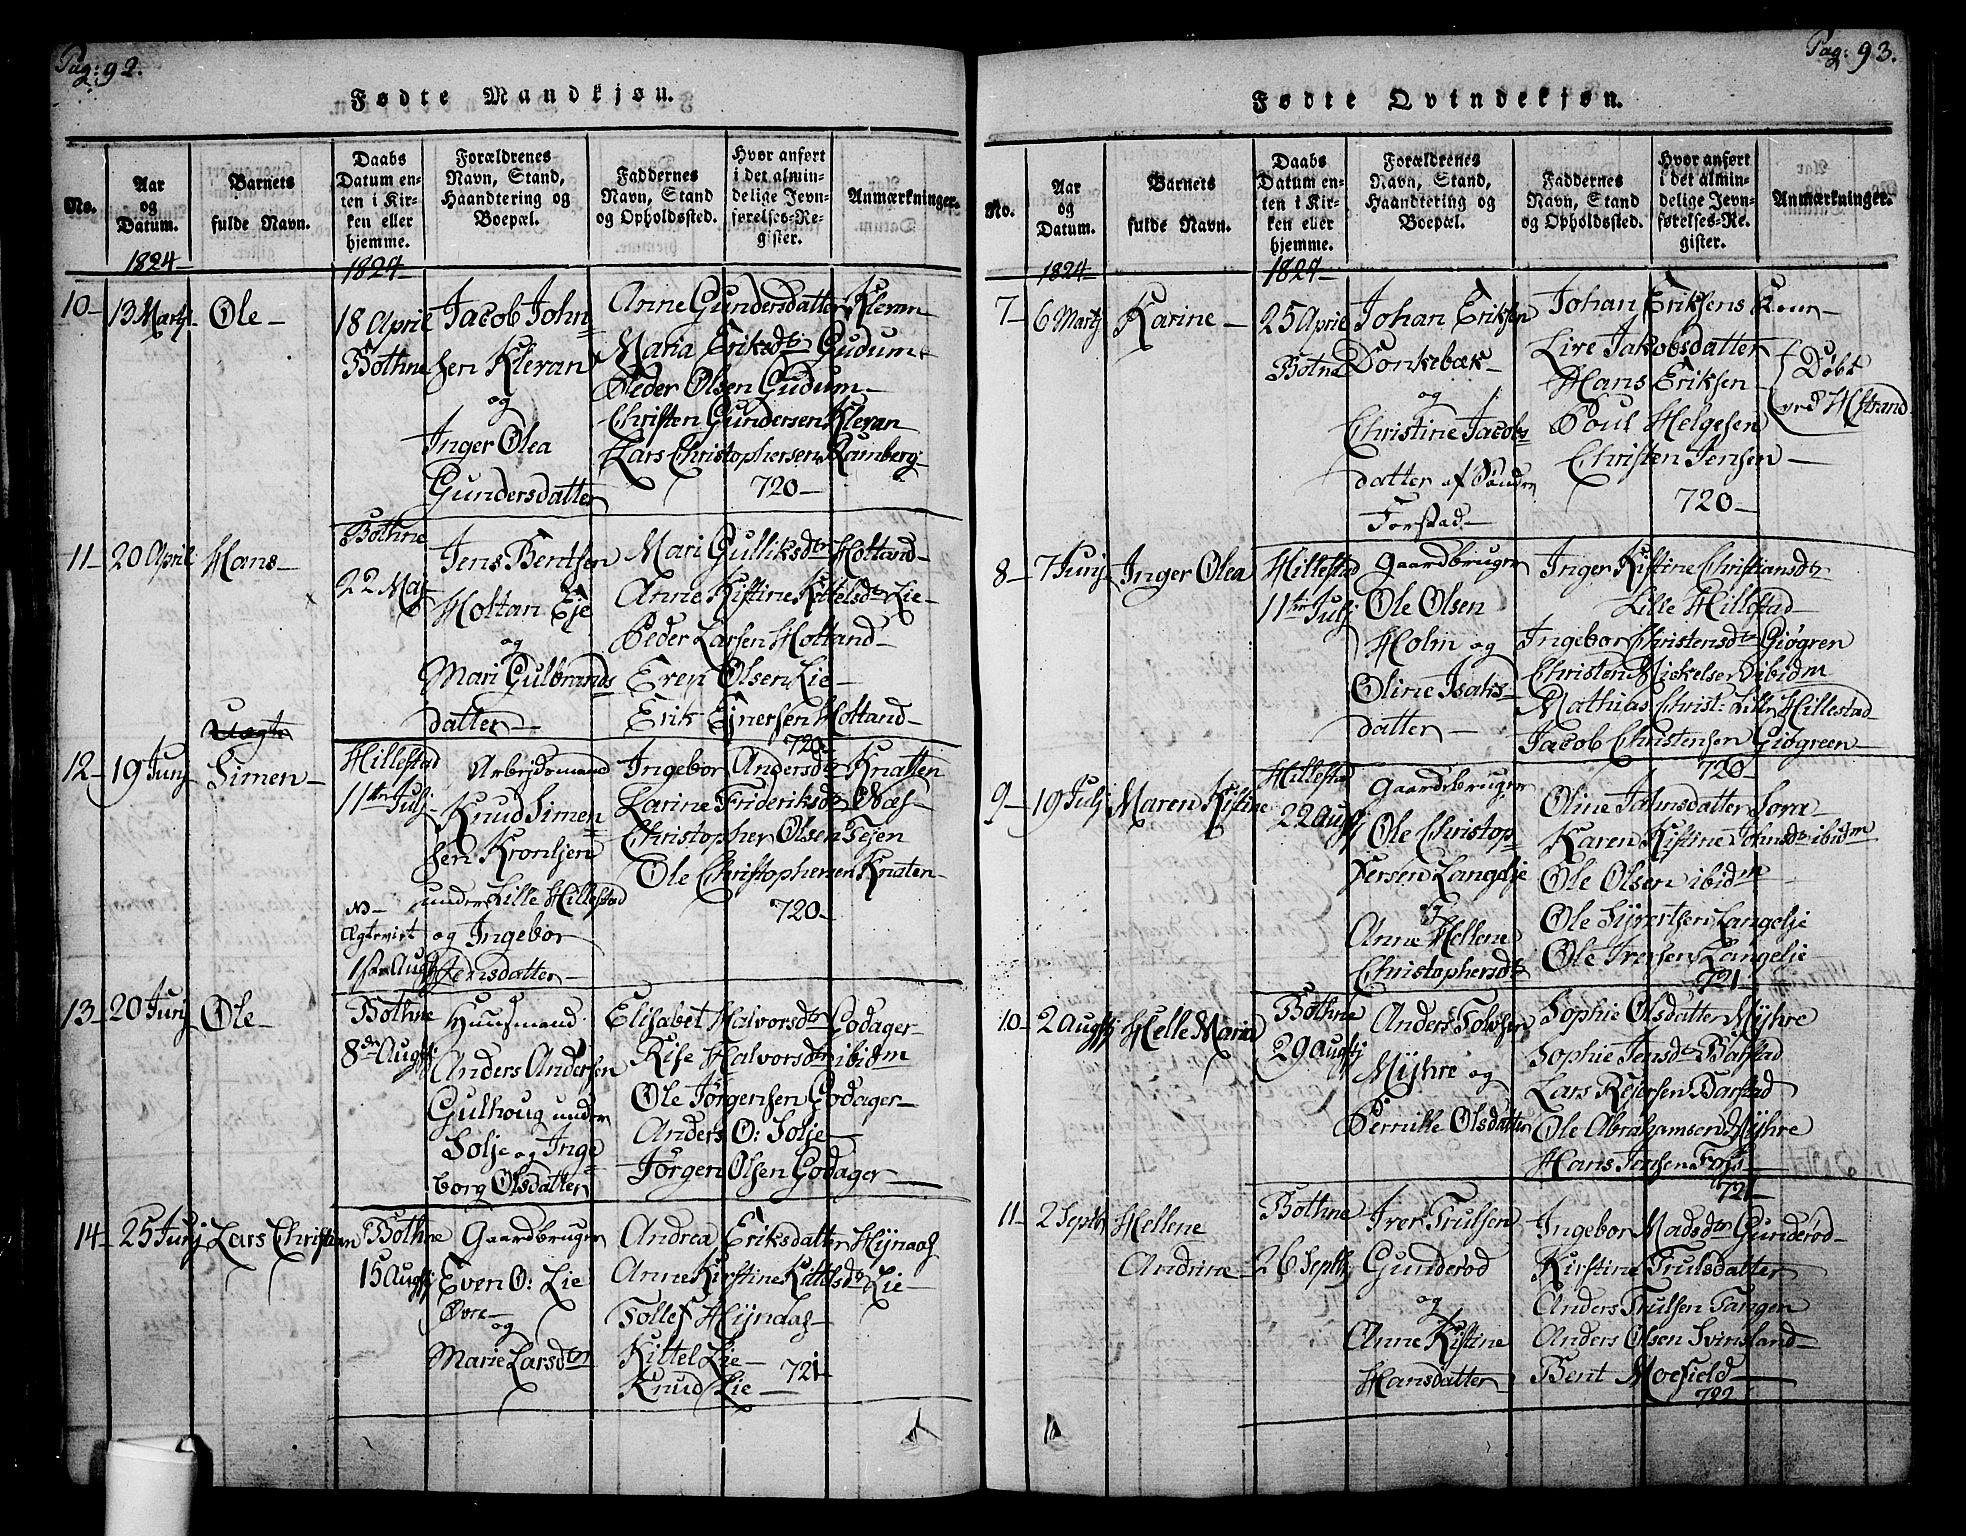 Pag: 92.
Fødte Mandkjøn.
No.
Aar og Datum.
Barnets fulde Navn.
Daabs Datum enten i Kirken eller hjemme.
Forældrenes Navn, Stand, Haandtering og Boepæl.
Faddernes Navn, Stand og Opholdssted.
Hvor anført i det almindelige Jevnførelses-Register.
Anmærkninger.
1824-
1824-
10-
13 Martj
Ole-
18 April
Bothne
Jacob John=
sen Kleran
og
Inger Olea
Gundersdatter
Anne Gundersdatter Kleran-
Maria Eriksdtr Gudum-
Peder Olsen Gudum-
Christen Gundersen Kleran
Lars Christophersen Ramberg-
720-
11-
20 April
Hans-
Bothne
22 Maj
Jens Bentsen
Holtan Eje
og
Mari Gulbrands
datter-
Mari Gulliksdtr Holtand-
Anne Kistine Kittelsdtr Lie-
Peder Larsen Holtand-
Even Olsen Lie-
Erik Ejnersen Holtand-
720-
12-
19 Junj
Uægte
Simen-
Hillestad
11te Julj
NB-
Ægteviet
1ste Augstj
Arbejdsmand
Knud Simen=
sen Kronljen
under Lille Hillestad
og Ingebor
Jensdatter-
Ingebor Andersdtr Knatten
Karine Frideriksdtr Næs-
Christopher Olsen Tejen
Ole Christophersen Knaten-
720-
13-
20 Junj
Ole-
Bothne
8de Augstj
Huusmand
Anders Andersen
Gulhoug under
Solje og Inge=
borg Olsdatter
Elisabet Halvorsdtr Godager-
Rise Halvorsdtr ibidm
Ole Jörgensen Godager-
Anders O: Solje-
Jörgen Olsen Godager-
14-
25 Junj
Lars Christian
Bothne
15 Augstj
Gaardbruger
Even O: Lie
Øvre-
og
Marie Larsdtr
Andrea Eriksdatter Hÿndas
Anne Kirstine Kittelsdtr Lie-
Tollef Hÿndas-
Kittel Lie-
Knud Lie-
721-
Pag: 93.
Fødte Qvindekjøn.
No.
Aar og Datum.
Barnets fulde Navn.
Daabs Datum enten i Kirken eller hjemme.
Forældrenes Navn, Stand, Haandtering og Boepæl.
Faddernes Navn, Stand og Opholdssted.
Hvor anført i det almindelige Jevnførelses-Register.
Anmærkninger.
1824-
1824-
7-
6 Martj
Karine-
25 April
Botne
Johan Eriksen
Donkebæk-
og
Christine Jacobs
datter af Søndre
Forstad-
Johan Eriksens Kone-
Live Jakobsdatter
Hans Eriksen-
Poul Helgesen
Christen Jensen-
720-
Döbt
ved Hstrand
8-
7 Junj
Inger Olea
Hillestad
11te Julj
Gaardbruger
Ole Olsen
Holm og
Oline Isaks-
datter-
Inger Kistine Christiansdtr
Lille Hillestad-
Ingebor Christensdtr Giögren
Christen Mickelsen ibidm
Mathias Christ: Lille Hillestad-
Jacob Christensen Giögreen-
720-
9-
19 Julj
Maren Kistine
Hillestad
22 Augstj
Gaardbruger
Ole Christop
fersen Langelje
og
Anne Hellene
Christophersdtr
Oline Johnsdatter
Karen Kistine Johnsdtr ibidm
Ole Olsen ibidm
Ole Sÿvertsen Langelje
Ole Iversen Langelje
721-
10-
2 Augstj
Helle Maria
Bothne
29 Augstj
Anders Tolvsen
Mÿhre og
Pernille Olsdatter
Sophie Olsdatter Mÿhre
Sophie Jensdtr Barstad
Lars Rejersen Barstad
Ole Abrahamsen Mÿhre
Hans Jensen Fos-
721-
11-
2 Septbr
Hellene
Andrine-
Bothne
26 Septbr
Iver Trulsen
Gunderöd
og
Anne Kistine
Hansdatter
Ingebor Madsdtr Gunderöd-
Kirstine Trulsdatter
Anders Trulsen Tangen
Anders Olsen Svinsland-
Bent Moefield-
722-